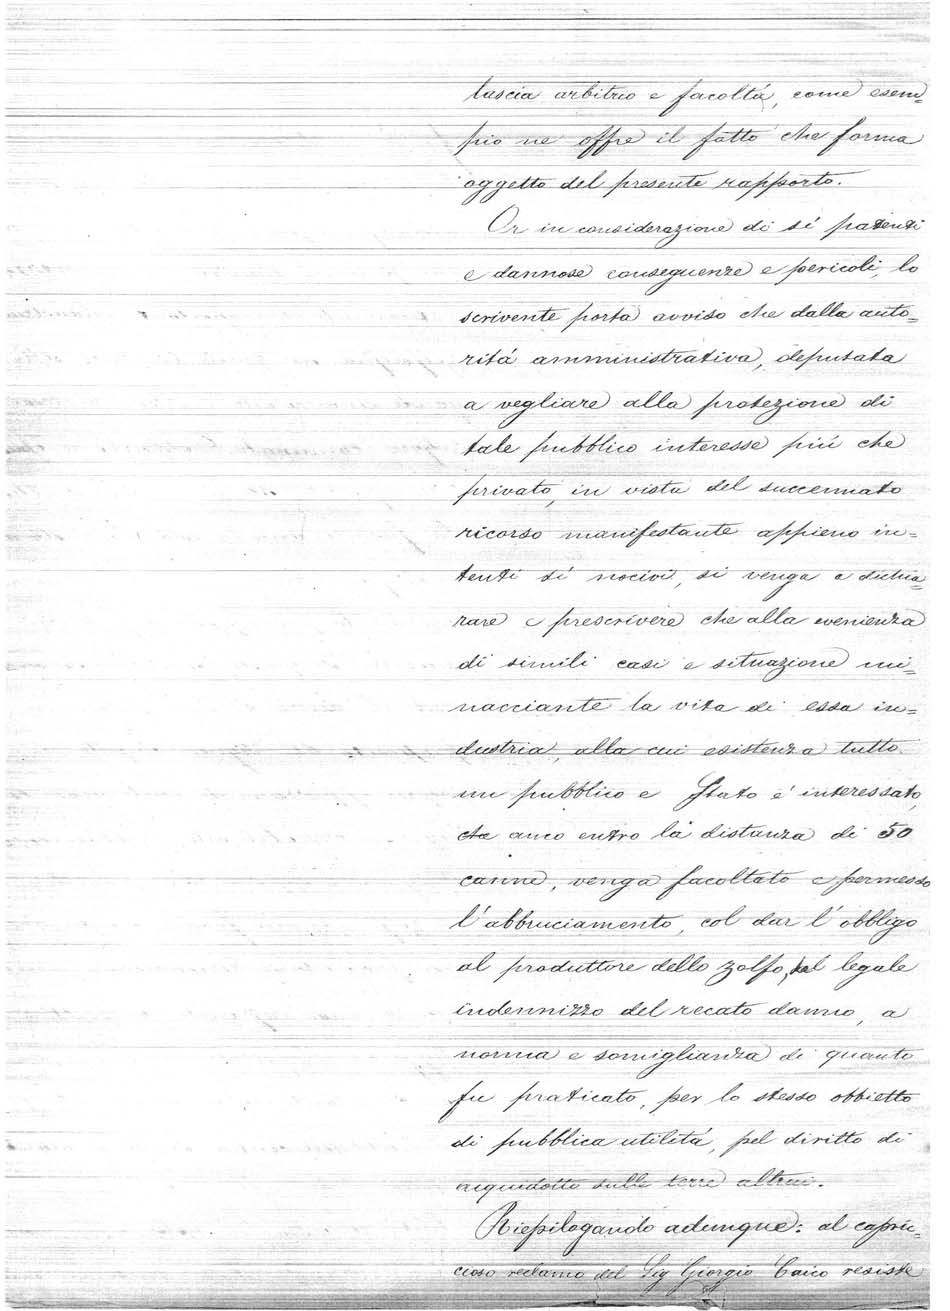 lascia arbitrio e facoltá, come esem=
pio ne offre il fatto che forma
oggetto del presente rapporto.
Or in considerazione di sí patenti
e dannose conseguenze e pericoli, lo
scrivente porta avviso che dalla auto=
ritá amministrativa, deputata
a vegliare alla protezione di
tale pubblico interesse piú che
privato, in vista del succennato
ricorso manifestante appieno in=
tenti sí nocivi, si venga a dichia=
rare e prescrivere che alla evenienza
di simili casi e situazione mi=
nacciante la vita di essa in=
dustria, alla cui esistenza tutto
un pubblico e Stato é interessato,
che anco entro la distanza di 50
canne, venga facoltato e permesso
l'abbruciamento, col dar l'obbligo
al produttore dello zolfo, del legale
indennizzo del recato danno, a
norma e somiglianza di quanto
fu praticato, per lo stesso obbietto
di pubblica utilitá, pel diritto di
acquedotto sulle terre altrui.
Riepilogando adunque: al capric=
cioso reclamo del Sig Giorgio Caico resiste